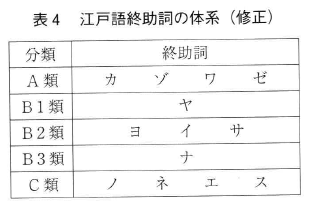 表4 江戸語終助詞の体系（修正）
分類 終助詞
A類 カ ゾ ワ ゼ
B1類 ヤ
B2類 ヨ イ サ
B3類 ナ
C類 ノ ネ エ ス